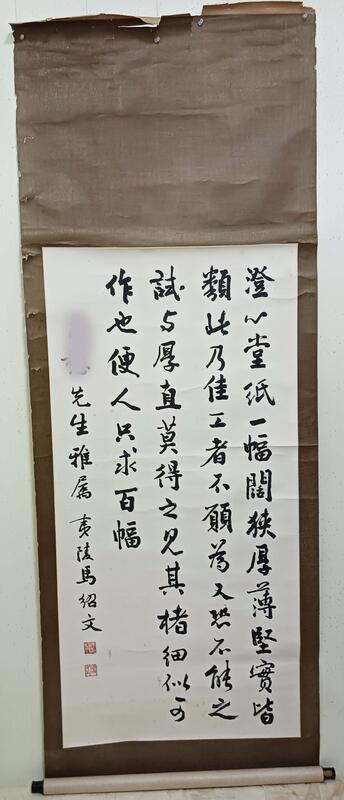 澄心堂紙一幅闊狹厚薄堅實皆
類此乃佳工者不願為又恐不能之
試與厚直莫得之見其楮細似可
作也便人只求百幅
先生雅屬 夷陵馬紹文